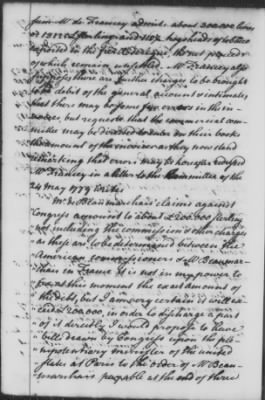 from Mr de Francey admits about 300000 livres
or 13125£ sterling and 1107 hogsheads of tobacco
exported in the fier Roderique, the net proceeds
of which remain unsettled. Mr Francey also
expresses there are further charges to be brought
to the debit of the general account & intimates
that there may be some few errors in the in-
voice, but requests that the commercial com-
mittee may be directed to enter on their books
the amount of the invoices as they now stand
remarking that errors may be hereafter redressed
Mr Francey in a letter to the Committee of the
24 May 1779 writes
Mr. de Beaumarchais claims against
Congress amount to about £200.000 sterling
not including the commission & other charges
as these are to be determined between the
American commissioners & Mr Beaumar-
chais in France. It is not in my power to
fix at this moment the exact amount of
the debt, but I am very certain it will ex-
ceed £200,000, in order to discharge a part
of it directly I would propose to have
bills drawn by Congress upon the ple-
nipotentiary minister of the united
states at Paris to the Order of Mr Beau-
marchais payable at the end of three